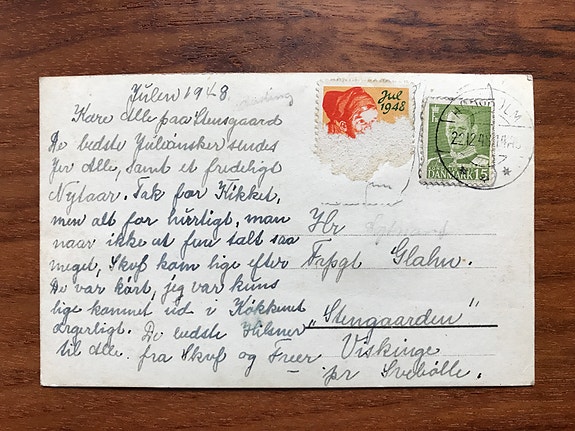 Julen 1948.
Kære Alle paa Stensgaard
De bedste Juleønsker sendes
Jer Alle, samt et fredeligt
Nytaar. Tak for Kikket,
men alt for hurtigt, man
naar ikke at faa talt saa
meget, Skof kom lige efter
De var kørt, jeg var kuns
lige kommet ud i Køkkenet
ærgerligt. De bedste Hilsner
til Alle. fra Skof og Freer
Jul
1948
DANMARK 15
22.12.48
Hr
Frpgt Glahn.
"Stengaarden"
Viskinge
pr Svebølle.